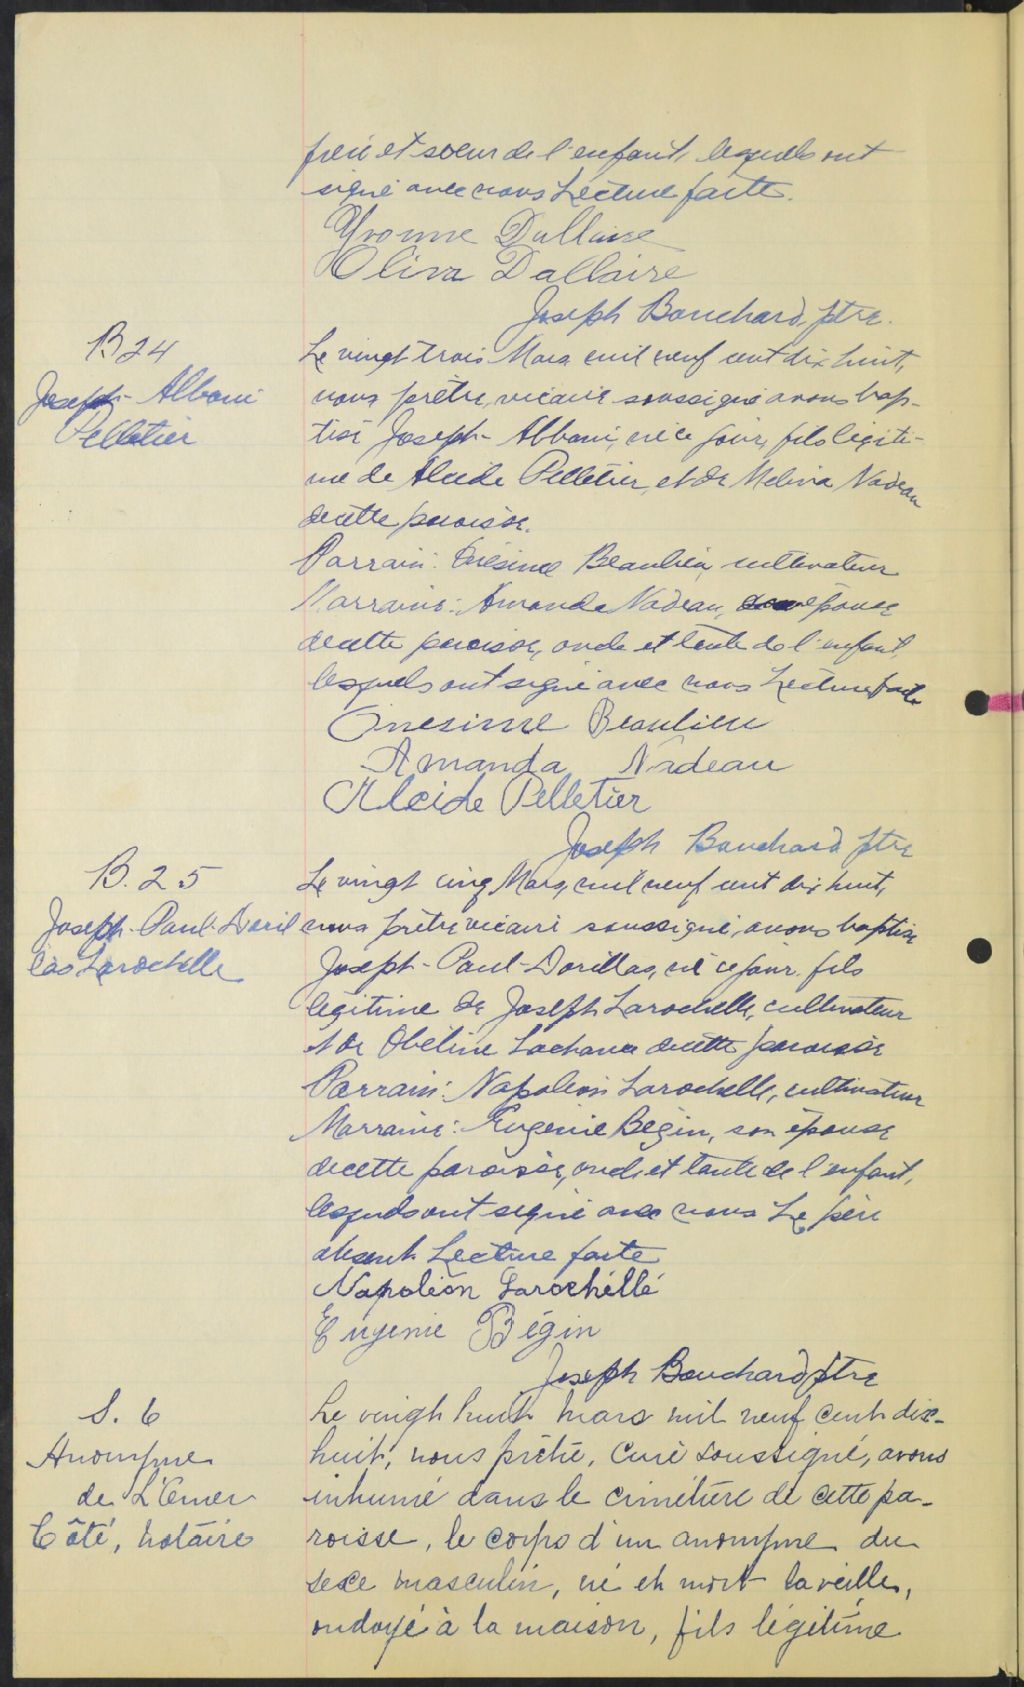 frère et soeur de l'enfant, lesquels ont
signé avec nous Lecture faite.
Yvonne Dallaire
Oliva Dallaire
Joseph Bouchard, ptre.
B 24
Joseph-Albani
Pelletier
Le vingt trois Mars mil neuf cent dix huit,
nous prêtre, vicaire soussigné avons bap-
tisé Joseph-Albani, né ce jour, fils légiti-
me de Alcide Pelletier, et de Melina Nadeau
de cette paroisse.
Parrain: Onésime Beaulieu, cultivateur
Marraine: Amanda Nadeau, épouse
de cette paroisse, oncle et tante de l'enfant,
lesquels ont signé avec nous Lecture faite
Onesime Beaulieu
Amanda Nadeau
Alcide Pelletier
Joseph Bouchard ptre
B. 25
Joseph-Paul-Doril
las Larochelle
Le vingt cinq Mars, mil neuf cent dix huit,
nous prêtre vicaire soussigné, avons baptisé
Joseph-Paul-Dorillas, né ce jour, fils
légitime de Joseph Larochelle, cultivateur
et de Obéline Lachance de cette paroisse
Parrain: Napoléon Larochelle, cultivateur
Marraine: Eugenie Bégin, son épouse
de cette paroisse, oncle et tante de l'enfant,
lesquels ont signé avec nous Le père
absent. Lecture faite
Napoléon Larochéllé
Eugenie Bégin
Joseph Bouchard ptre
S. 6
Anonyme
de L'Omer
Côté, notaire
Le vingt huit mars mil neuf cent dix-
huit, nous prêtre, curé soussigné, avons
inhumé dans le cimétière de cette pa-
roisse, le corps d'un anonyme du
sexe masculin, né et mort la veille,
ondoyé à la maison, fils légitime